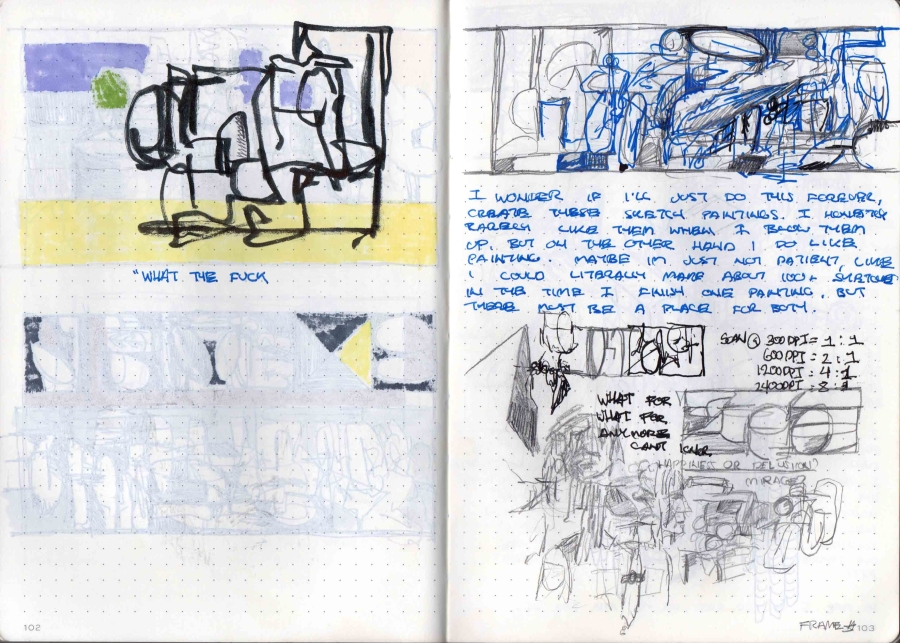 "WHAT THE FUCK
102
I WONDER IF I'LL JUST DO THIS FOREVER,
CREATE THESE SKETCH PAINTINGS. I HONESTLY
RARELY LIKE THEM WHEN I BLOW THEM
UP. BUT ON THE OTHER HAND I DO LIKE
PAINTING. MAYBE IM JUST NOT PATIENT, LIKE
I COULD LITERALLY MAKE ABOUT 100+ SKETCHES
IN THE TIME I FINISH ONE PAINTING. BUT
THERE MUST BE A PLACE FOR BOTH.
SCAN @ 300DPI = 1:1
600DPI = 2:1
1200DPI = 4:1
2400DPI = 8:1
WHAT FOR
WHAT FOR
ANYMORE
CANT
HAPPINESS OR DELUSION?
MIRAGE
103